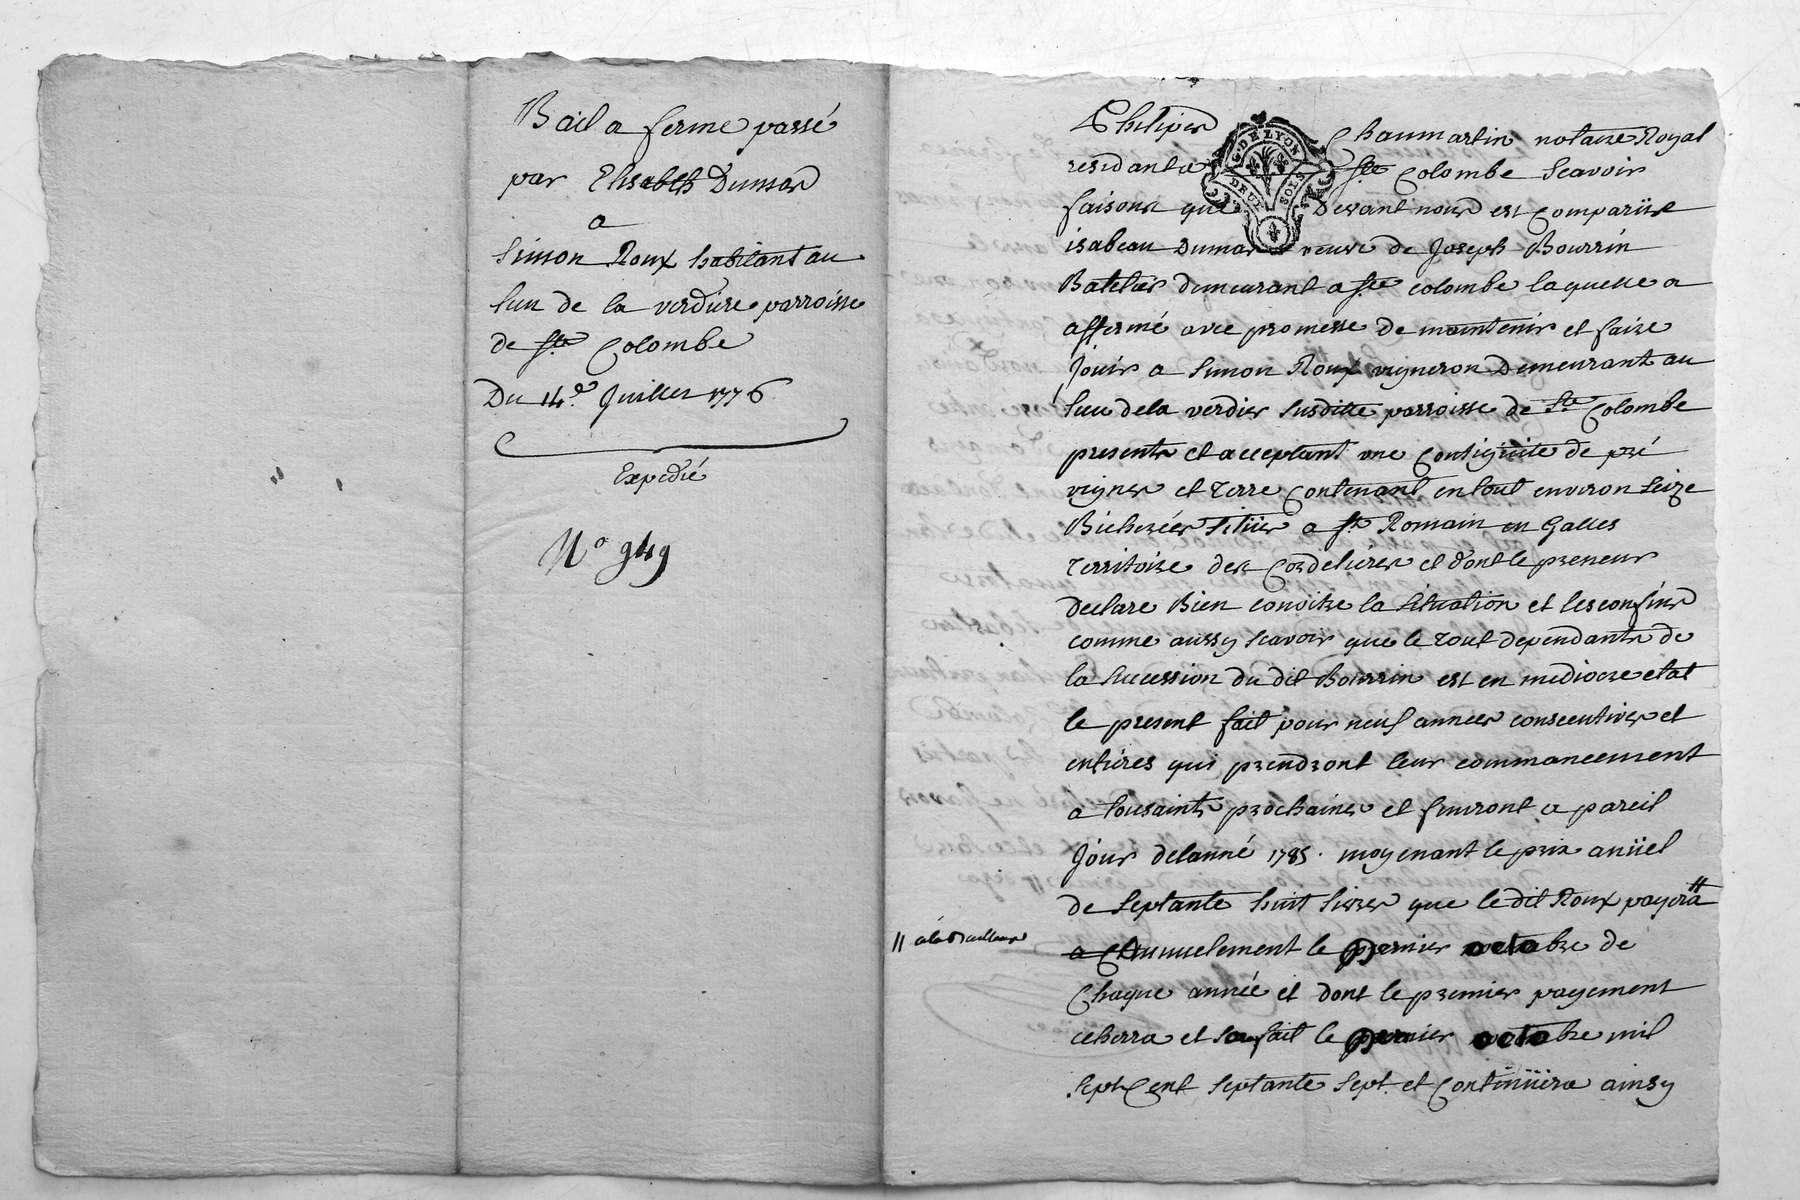 Bail a ferme passé
par Elisabeth Dumas
a
Simon Roux habitant au
lieu de la verdiere parroisse
de Ste Colombe
Du 14e. Juillet 1776
Expedié
No 949
Philipes Chaumartin notaire Royal
residant a Ste Colombe scavoir
faisons que Devant nous est Comparüe
isabeau Dumas veuve de Joseph Bourrin
Batelier demeurant a Ste colombe laquelle a
affermé avec promesse de maintenir et faire
Jouir a Simon Roux vigneron Demeurant au
lieu dela verdier susditte parroisse de Ste Colombe
present et acceptant une Contiguite de pré
vignes et Terre Contenant en tout environ seize
Bicherées sitüés a St Romain en Galles
Territoire des Cordeliers et dont le preneur
declare Bien conoitre la situation et les confins
comme aussy scavoir que le Tout dependant de
la sucession du dit Bourrin est en mediocre etat
le present fait pour neuf années consecutives et
entieres qui prendront leur commancement
a tousaints prochaines et finiront a pareil
Jour delanné 1785. moyenant le prix anüel
de septante huit livres que le dit Roux payera //
// ala Bailleuse
a Annuelement le premier octobre de
Chaque année et dont le premier payement
echerra et sera fait le premier octobre mil
sept Cent septante sept et Continüera ainsy
G. DE LYON
DEUX SOLS